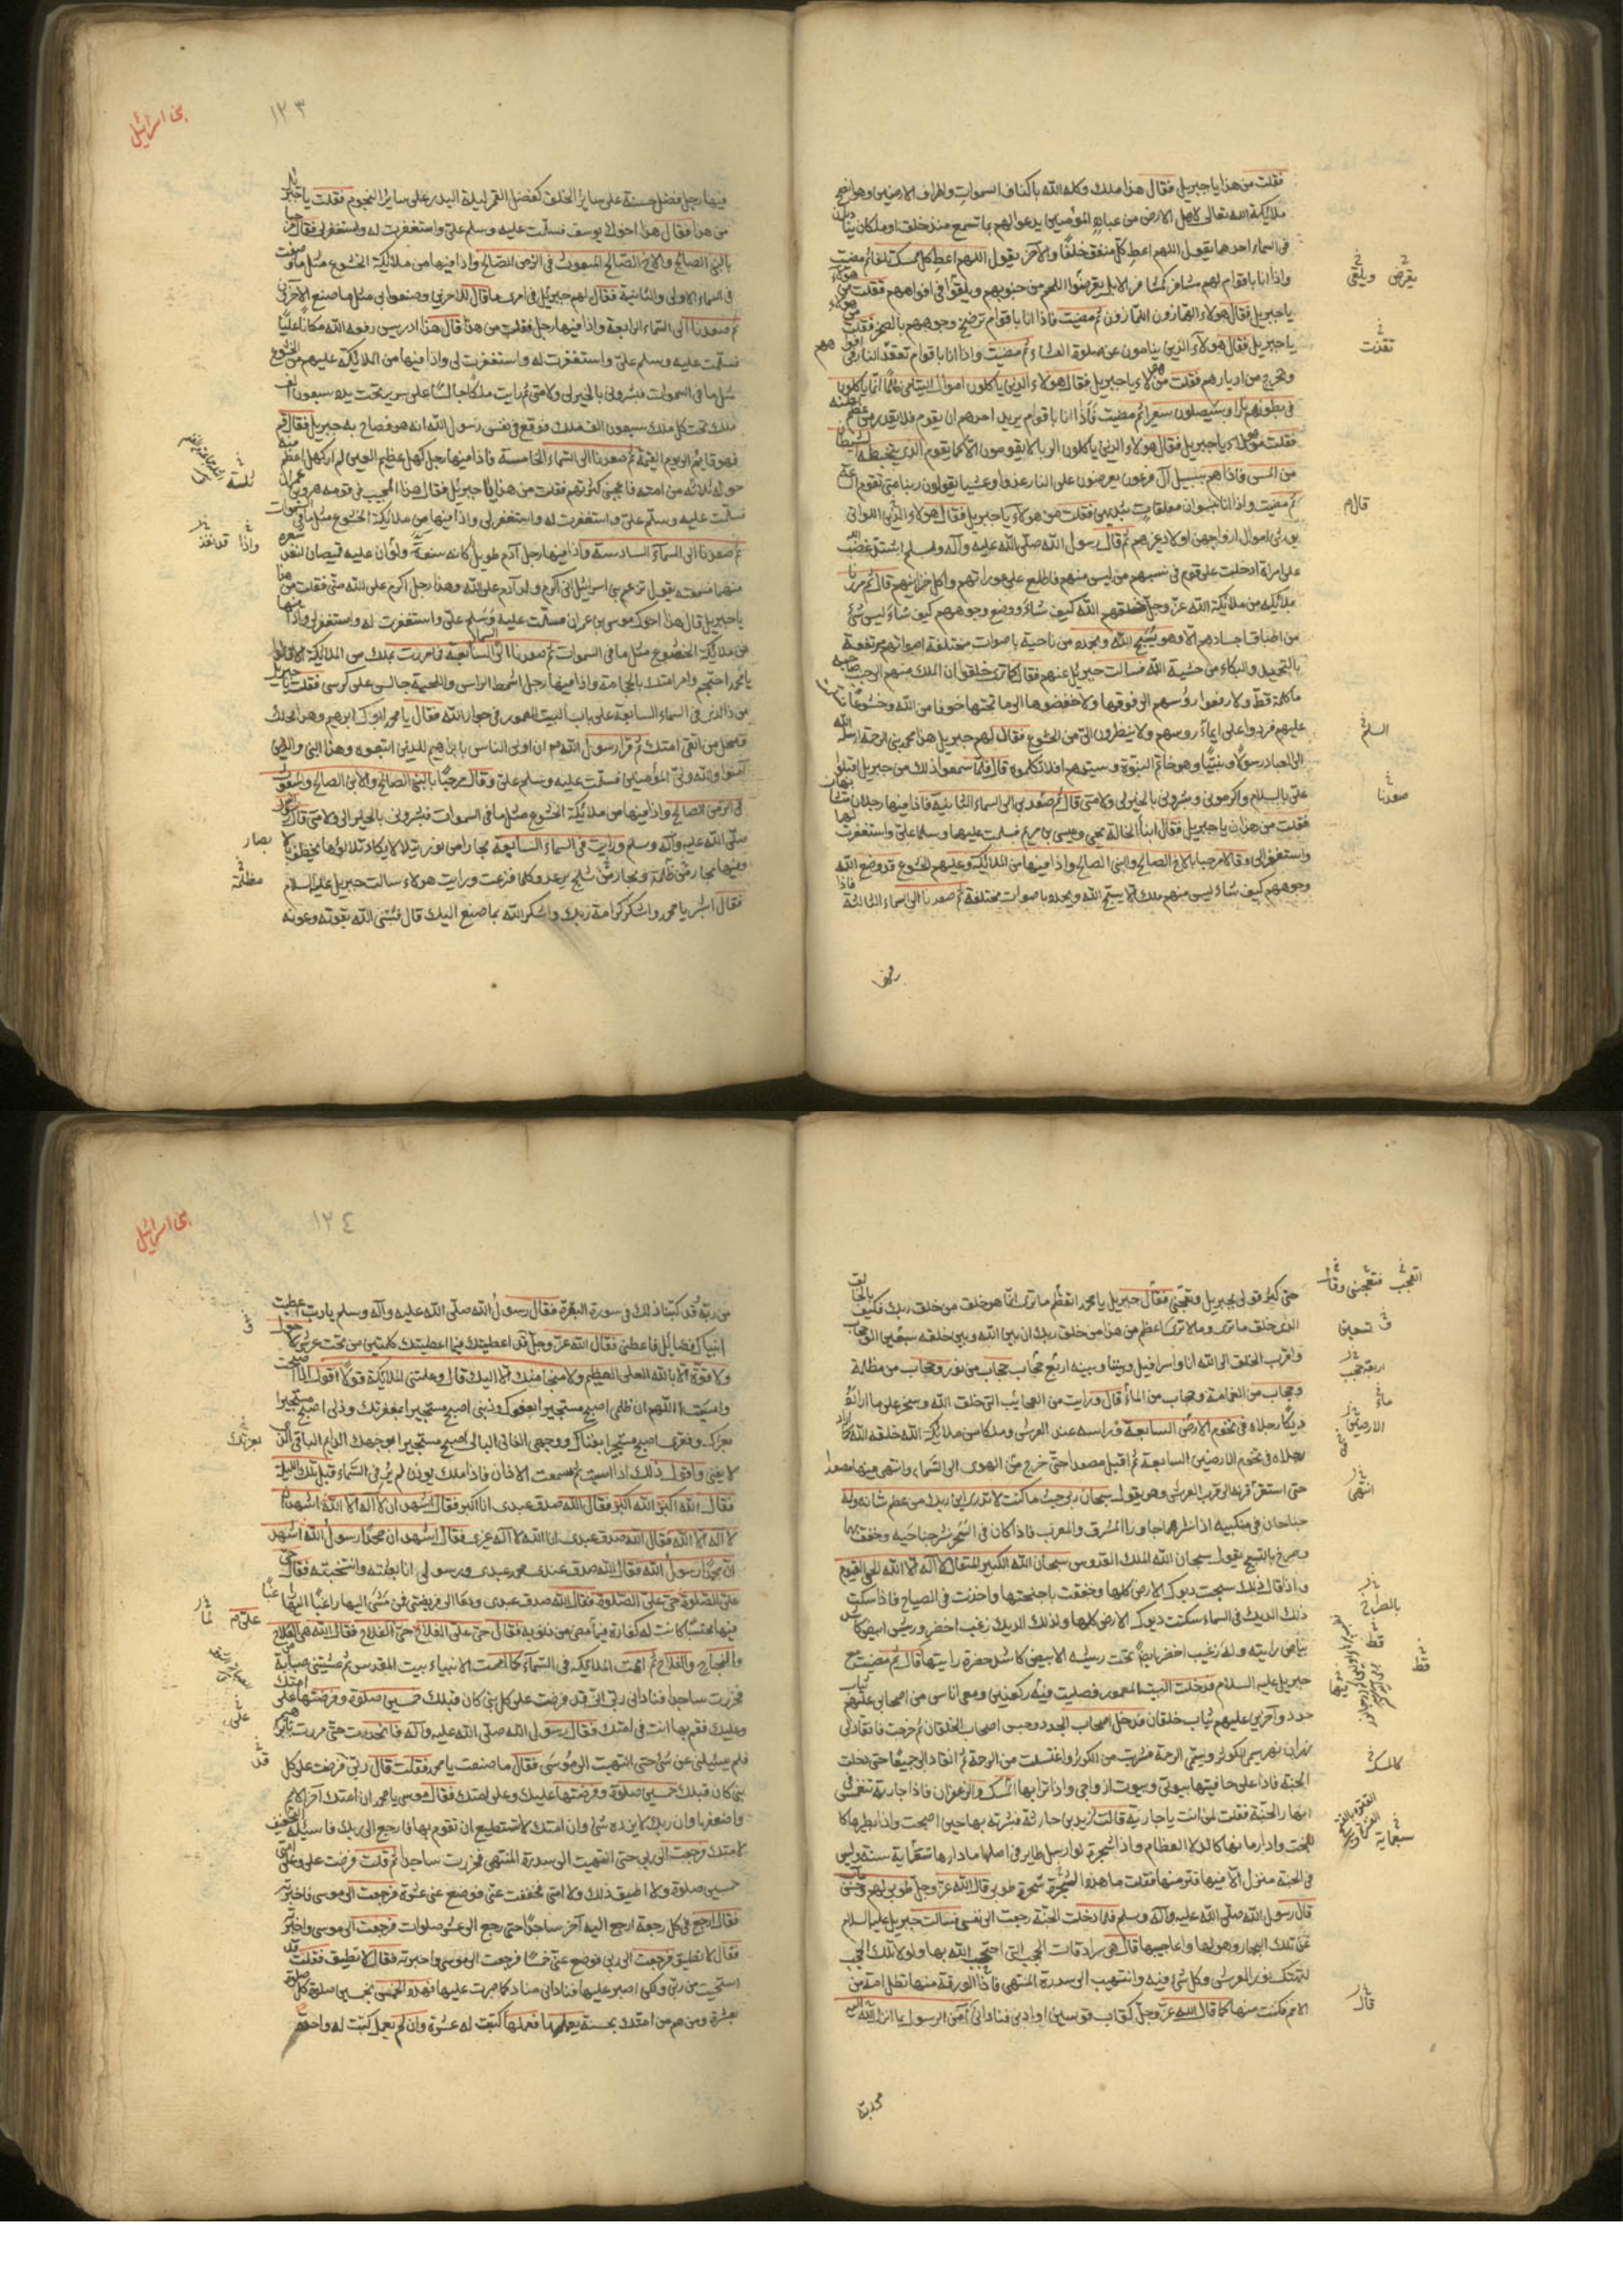 فقلت من هذا يا جبريل فقال هذا ملك وكله الله باكناف السموات واطراف الارضين وهو انصح
ملائكة الله تعالى لاهل الارض من عباده المؤمنين يدعو لهم بما تسمع منذ خلق وملكان يناديان
في السماء احدهما يقول اللهم اعط كل منفق خلفا والآخر يقول اللهم اعط كل ممسك تلفا ثم مضيت
واذا انا باقوام لهم مشافر كمشافر الابل يقرضون اللحم من جنوبهم ويلقوا في افواههم فقلت من هؤلاء
يا جبريل فقال هؤلاء الهمازون اللمازون ثم مضيت فاذا انا باقوام ترضخ وجوههم بالصخر فقلت من هؤلاء
يا جبريل فقال هؤلاء الذين ينامون عن صلوة العشاء ثم مضيت واذا انا باقوام تقذف النار في افواههم
وتخرج من ادبارهم فقلت من هؤلاء يا جبريل فقال هؤلاء الذين ياكلون اموال اليتامى ظلما انما ياكلون
في بطونهم نارا وسيصلون سعيرا ثم مضيت فاذا انا باقوام يريد احدهم ان يقوم فلا يقدر من عظم بطنه
فقلت من هؤلاء يا جبريل فقال هؤلاء الذين ياكلون الربا لا يقومون الا كما يقوم الذي يتخبطه الشيطان
من المس فاذا هم بسبيل آل فرعون يعرضون على النار غدوا وعشيا يقولون ربنا متى تقوم الساعة
ثم مضيت واذا انا بنسوان معلقات بثديهن فقلت من هؤلاء يا جبريل فقال هؤلاء اللواتي
يورثن اموال ازواجهن اولاد غيرهم ثم قال رسول الله صلى الله عليه وآله وسلم اشتد غضب الله
على امراة ادخلت على قوم في نسبهم من ليس منهم فاطلع على عوراتهم واكل خزاينهم قال ثم مررنا
بملائكة من ملائكة الله عز وجل خلقهم الله كيف شاء ووضع وجوههم كيف شاء ليس شئ
من اطباق اجسادهم الا وهو يسبح الله ويحمده من ناحية باصوات مختلفة اصواتهم مرتفعة
بالتحميد والبكاء من خشية الله فسالت جبريل عنهم فقال كما ترى خلقوا ان الملك منهم الى جنب صاحبه
ما كلمه قط ولا رفعوا رؤسهم الى فوقها ولا خفضوها الى ما تحتها خوفا من الله وخشوعا
عليهم فردوا على ايماء روسهم ولا ينظرون الي من الخشوع فقال لهم جبريل هذا محمد نبي الرحمة ارسله الله
الى العباد رسولا ونبيا وهو خاتم النبوة وسيدهم افلا تكلموه قال فلما سمعوا ذلك من جبريل اقبلوا
علي بالسلام واكرموني وبشروني بالخير لي ولامتي قال ثم صعد بي الى السماء الثانية فاذا فيها رجلان متشابهان
فقلت من هذان يا جبريل فقال ابنا الخالة يحيى وعيسى بن مريم فسلمت عليهما وسلما علي واستغفرت لهما
واستغفرا لي وقالا مرحبا بالاخ الصالح والنبي الصالح واذا فيها من الملائكة وعليهم الخشوع قد وضع الله
وجوههم كيف شاء ليس منهم ملك الا يسبح الله ويحمده باصوات مختلفة ثم صعدنا الى السماء الثالثة فاذا
يقرض ويلقى
تقذف
قال م
السلم
صعدنا
بنى اسرائيل
١٢٣
فيها رجل فضل حسنه على ساير الخلق كفضل القمر ليلة البدر على ساير النجوم فقلت يا جبريل
من هذا فقال هذا اخوك يوسف فسلمت عليه وسلم علي واستغفرت له واستغفر لي فقال مرحبا
بالنبي الصالح والاخ الصالح المبعوث في الزمن الصالح واذا فيها من ملائكة الخشوع مثل ما وصفت
في السماء الاولى والثانية فقال لهم جبريل في امري ما قال للاخرين وصنعوا بي مثل ما صنع الآخرين
ثم صعدنا الى السماء الرابعة واذا فيها رجل فقلت من هذا قال هذا ادريس رفعه الله مكانا عليا
فسلمت عليه وسلم علي واستغفرت له واستغفر لي واذا فيها من الملائكة عليهم من الخشوع
مثل ما في السموات فبشروني بالخير لي ولامتي ثم رايت ملكا جالسا على سرير تحت يده سبعون الف
ملك تحت كل ملك سبعون الف ملك فوقع في نفس رسول الله انه هو فصاح به جبريل فقال قم
فهو قايم الى يوم القيمة ثم صعدنا الى السماء الخامسة فاذا فيها رجل كهل عظيم العين لم ار كهلا اعظم منه
حوله ثلاثة من امته فاعجبني كثرتهم فقلت من هذا يا جبريل فقال هذا المجيب في قومه هرون بن عمران
فسلمت عليه وسلم علي واستغفرت له واستغفر لي واذا فيها من ملائكة الخشوع مثل ما في السموات
ثم صعدنا الى السماء السادسة واذا فيها رجل آدم طويل كانه من شنوة ولو ان عليه قميصان لنفذ شعره
منهما فسمعته يقول تزعم بنى اسرائيل اني اكرم ولد آدم على الله وهذا رجل اكرم على الله مني فقلت من هذا
يا جبريل قال هذا اخوك موسى بن عمران فسلمت عليه وسلم علي واستغفرت له واستغفر لي واذا فيها
من ملائكة الخشوع مثل ما في السموات ثم صعدنا الى السماء السابعة فما مررت بملك من الملائكة الا قالوا
يا محمد احتجم وامر امتك بالحجامة واذا فيها رجل اشمط الراس واللحية جالس على كرسي فقلت يا جبريل
من ذا الذي في السماء السابعة على باب البيت المعمور في جوار الله فقال يا محمد ابوك ابراهيم وهذا محلك
ومحل من اتقى من امتك ثم قرا رسول الله م ان اولى الناس بابراهيم للذين اتبعوه وهذا النبي والذين
آمنوا والله ولي المؤمنين فسلمت عليه وسلم علي وقال مرحبا بالنبي الصالح والابن الصالح والمبعوث
في الزمن الصالح واذا فيها من ملائكة الخشوع مثل ما في السموات فبشروني بالخير لي ولامتي قال رسول الله
صلى الله عليه وآله وسلم ورايت في السماء السابعة بحارا من نور يتلالا يكاد تلالؤها يخطف بالابصار
وفيها بحار من ظلمة وبحار من ثلج يرعد فكلما فزعت ورايت هولاء سالت جبريل عليه السلام
فقال ابشر يا محمد واشكر كرامة ربك واشكر الله بما صنع اليك قال فثبتني الله بقوته وعونه
بصار
مظلمة
حتى كثر قولي لجبريل وتعجبي فقال جبريل يا محمد اتعظم ما ترى انما هو خلق من خلق ربك فكيف بالخالق
الذي خلق ما ترى وما لا ترى اعظم من هذا من خلق ربك ان بين الله وبين خلقه سبعين الف حجاب
واقرب الخلق الى الله انا واسرافيل وبيننا وبينه اربع حجاب حجاب من نور وحجاب من ظلمة
وحجاب من الغمامة وحجاب من الماء قال ورايت من العجايب التي خلق الله وسخر على ما اراده
ديكا رجلاه في تخوم الارض السابعة وراسه عند العرش وملكا من ملائكة الله خلقه الله كما اراد
رجلاه في تخوم الارضين السابعة ثم اقبل مصعدا حتى خرج من الهوى الى السماء وانتهى فيها مصعدا
حتى استقر قرنه الى قرب العرش وهو يقول سبحان ربي حيث ما كنت لا تدري اين ربك من عظم شانه وله
جناحان في منكبيه اذا نشرهما جاوزا المشرق والمغرب فاذا كان في السحر نشر جناحيه وخفق بهما
وصرخ بالتسبيح يقول سبحان الله الملك القدوس سبحان الله الكبير المتعال لا اله الا الله الحي القيوم
واذا قال ذلك سبحت ديوك الارض كلها وخفقت باجنحتها واخذت في الصياح فاذا سكت
ذلك الديك في السماء سكتت ديوك الارض كلها ولذلك الديك زغب اخضر وريش ابيض كاشد
بياض رايته وله زغب اخضر ايضا تحت ريشه الابيض كاشد خضرة رايتها قال ثم مضيت مع
جبريل عليه السلام فدخلت البيت المعمور فصليت فيه ركعتين ومعي اناس من اصحابي عليهم ثياب
جدد وآخرين عليهم ثياب خلقان فدخل اصحاب الجدد وحبس اصحاب الخلقان ثم خرجت فانقاد لي
نهران نهر يسمى الكوثر ونهر يسمى الرحمة فشربت من الكوثر واغتسلت من الرحمة ثم انقادا لي جميعا حتى دخلت
الجنة فاذا على حافتيها بيوتي وبيوت ازواجي واذا ترابها المسك والزعفران فاذا جارية تنغمس في
انهار الجنة فقلت لمن انت يا جارية قالت لزيد بن حارثة فبشرته بها حين اصبحت واذا بطيرها كا
البخت واذا رمانها كالدلاء العظام واذا شجرة لو ارسل طاير في اصلها ما دارها سبعماية سنة وليس
في الجنة منزل الا فيها فنن منها فقلت ما هذه الشجرة يا جبريل طوبى قال الله عز وجل طوبى لهم وحسن مآب
قال رسول الله صلى الله عليه وآله وسلم فلما دخلت الجنة رجعت الى نفسي فسالت جبريل عليه السلام
عن تلك البحار وهولها واعاجيبها قال هي سرادقات الحجب التي احتجب الله بها ولولا تلك الحجب
لتهتك نور العرش وكل شئ فيه وانتهيت الى سدرة المنتهى فاذا الورقة منها تظل امة من
الامم فكنت منها كما قال الله عز وجل كقاب قوسين او ادنى فناداني آمن الرسول بما انزل اليه
اربعة حجب
ماء
الارضين
انتهى
قط
كالمسك
سبعماية
قال
بنى اسرائيل
١٢٤
من ربه قد كتبنا ذلك في سورة البقرة فقال رسول الله صلى الله عليه وآله وسلم يا رب اعطيت
انبياك فضايل فاعطني فقال الله عز وجل قد اعطيتك فيما اعطيتك كلمتين من تحت عرشي لا حول
ولا قوة الا بالله العلي العظيم ولا منجا منك الا اليك قال وعلمتني الملائكة قولا اقوله اذا اصبحت
وامسيت اللهم ان ظلمي اصبح مستجيرا بعفوك وذنبي اصبح مستجيرا بمغفرتك وذلي اصبح مستجيرا
بعزك وفقري اصبح مستجيرا بغناك ووجهي الفاني البالي اصبح مستجيرا بوجهك الدايم الباقي الذي
لا يفنى واقول ذلك اذا امسيت ثم سمعت الاذان فاذا ملك يؤذن لم ير في السماء قبل تلك الليلة
فقال الله اكبر الله اكبر فقال الله صدق عبدي انا اكبر فقال اشهد ان لا اله الا الله اشهد ان
لا اله الا الله فقال الله صدق عبدي انا الله لا اله غيري فقال اشهد ان محمدا رسول الله اشهد
ان محمدا رسول الله فقال الله صدق عبدي محمد عبدي ورسولي انا بعثته وانتجبته فقال حي
على الصلوة حي على الصلوة فقال الله صدق عبدي ودعا الى فريضتي فمن مشى اليها راغبا فيها
محتسبا كانت له كفارة فيما مضى من ذنوبه فقال حي على الفلاح حي على الفلاح فقال الله هي الفلاح
والنجاح والفلاح ثم اممت الملائكة في السماء كما اممت الانبياء بيت المقدس ثم غشيتني صبابة
فخررت ساجدا فناداني ربي اني قد فرضت على كل نبي كان قبلك خمسين صلوة وفرضتها على امتك
وعليك فقم بها انت في امتك فقال رسول الله صلى الله عليه وآله فانحدرت حتى مررت بابراهيم
فلم يسئلني عن شئ حتى انتهيت الى موسى فقال ما صنعت يا محمد فقلت قال ربي فرضت على كل
نبي كان قبلك خمسين صلوة وفرضتها عليك وعلى امتك فقال موسى يا محمد ان امتك آخر الامم
واضعفها وان ربك لا يزيده شئ وان امتك لا تستطيع ان تقوم بها فارجع الى ربك فاسئله التخفيف
لامتك فرجعت الى ربي حتى انتهيت الى سدرة المنتهى فخررت ساجدا ثم قلت فرضت علي وعلى امتي
خمسين صلوة ولا اطيق ذلك ولا امتي فخفف عني فوضع عني عشرة فرجعت الى موسى فاخبرته
فقال ارجع في كل رجعة ارجع اليه آخر ساجدا حتى رجع الى عشر صلوات فرجعت الى موسى واخبرته
فقال لا تطيق فرجعت الى ربي فوضع عني خمسا فرجعت الى موسى واخبرته فقال لا تطيق فقلت قد
استحييت من ربي ولكن اصبر عليها فناداني مناد كما صبرت عليها فهذه الخمس بخمسين صلوة كل صلوة
بعشرة ومن هم من امتك بحسنة يعملها فعملها كتبت له عشرة وان لم يعمل كتبت له واحدة